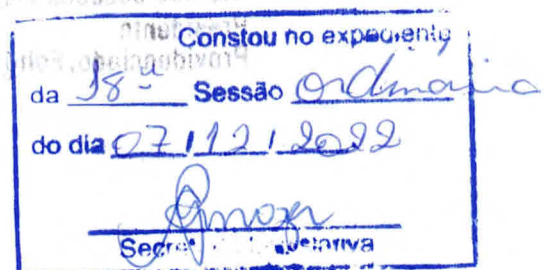 Constou no expediente
da 18ª Sessão Ordinária
do dia 07/12/2022
Secret